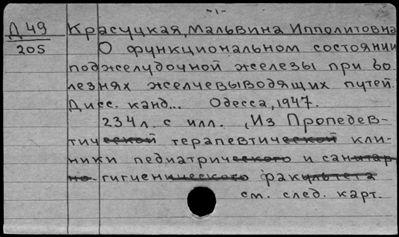 -1-
Д 49
205
Красуцкая, Мальвина Ипполитовна
О функциональном состоянии
поджелудочной железы при бо-
лезнях желчевыводящих путей.
Дисс. канд... Одесса, 1947.
234л. с илл. , Из Пропедев-
тической терапевтической кли-
ники педиатрического и санитар-
но-гигиенического факультета
см. след. карт.